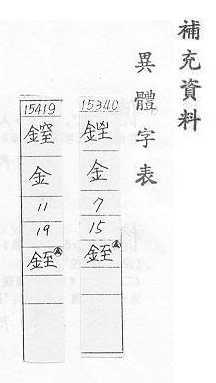 補充資料
異體字表
15340
金
7
15
銍
15419
金
11
19
銍